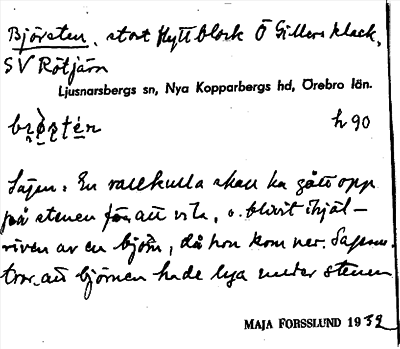 Björsten, stort flyttblock Ö Gillers klack,
SV Rötjärn
Ljusnarsbergs sn, Nya Kopparbergs hd, Örebro län.
h 90
Sägen: En vallkulla skall ha gått opp
på stenen för att vila, o. blivit ihjäl-
riven av en björn, då hon kom ner. Sagesm.
tror att björnen hade lya under stenen
MAJA FORSSLUND 1932